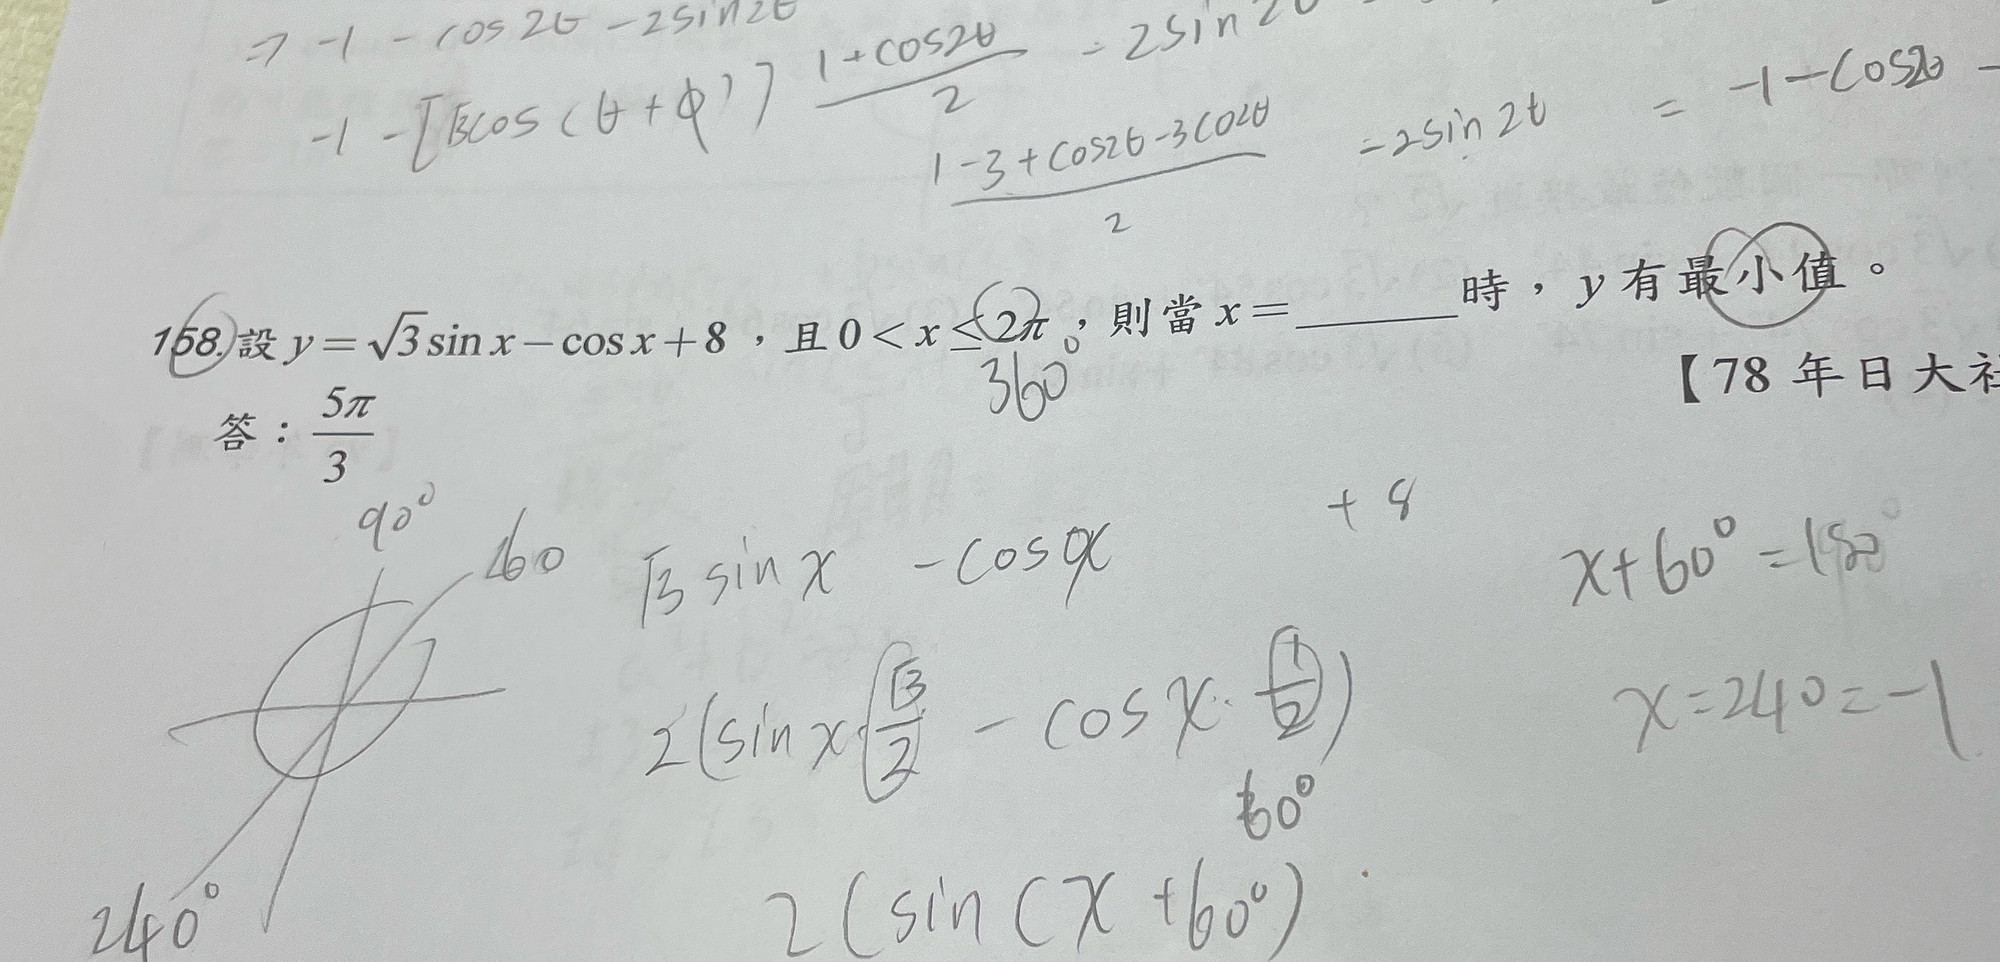 ⇒ -1 - cos2θ - 2sin2θ
-1 - [√3cos(θ+φ)] (1+cos2θ)/2 = 2sin2θ
(1-3+cos2θ-3cos2θ)/2 = 2sin2t = -1-cos2θ -
158. 設 y = √3 sin x − cos x + 8 , 且 0 < x ≤ 2π , 則當 x = ______ 時 , y 有最小值。
360°
【78 年日大社
答 : 5π/3
90°
260
√3 sin x - cos x + 8
x+60° = 180°
2(sin x · √3/2 - cos x · 1/2)
x = 240 = -1
60°
240°
2(sin(x+60°)